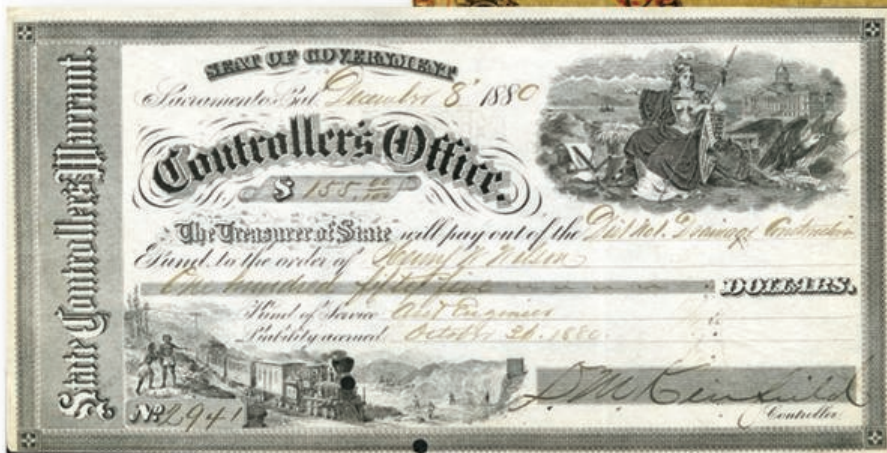 State Controller's Warrant.
SEAT OF GOVERNMENT
Sacramento, Cal. December 8" 1880
Controller's Office.
$ 155.00/100
The Treasurer of State will pay out of the Dist. No 1. Drainage Construction
Fund, to the order of Henry W Wilson
One hundred fifty five DOLLARS.
Kind of Service Asst Engineer
Liability accrued October 1880.
No. 2941
Controller